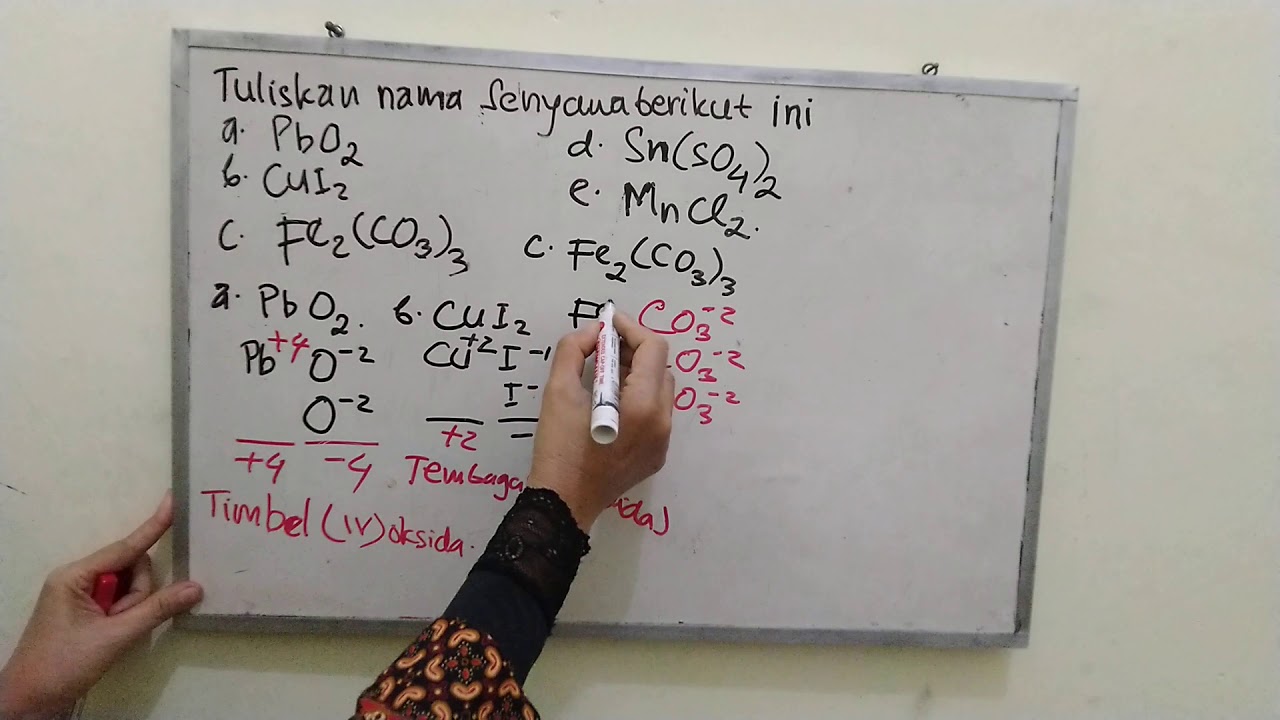 Tuliskan nama Senyawa berikut ini
a. PbO₂
b. CuI₂
c. Fe₂(CO₃)₃
d. Sn(SO₄)₂
e. MnCl₂.
c. Fe₂(CO₃)₃
a. PbO₂.
Pb⁺⁴ O⁻²
O⁻²
+4 -4
Timbel (IV) oksida.
b. CuI₂
Cu⁺² I⁻¹
I⁻
+2 -
Tembaga
CO₃⁻²
O₃⁻²
O₃⁻²